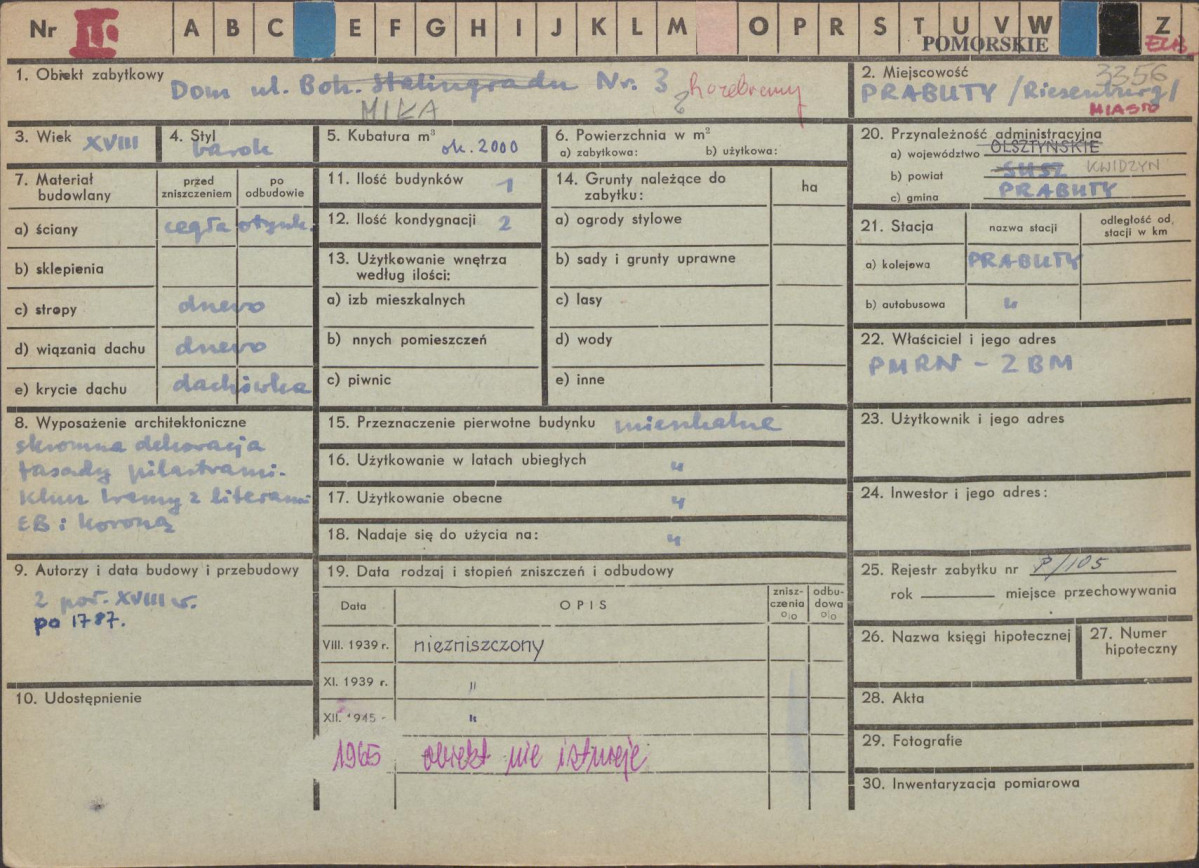 Nr II. A B C E F G H I J K L M O P R S T U V W Z
POMORSKIE
ELB.
1. Obiekt zabytkowy
Dom ul. Boh. Stalingradu Nr. 3
MIŁA
2. Miejscowość
3356
PRABUTY /Riesenburg/
MIASTO
3. Wiek XVIII
4. Styl barok
5. Kubatura m³ ok. 2000
6. Powierzchnia w m²
a) zabytkowa: b) użytkowa:
7. Materiał budowlany
przed zniszczeniem
po odbudowie
a) ściany cegła otynk.
b) sklepienia
c) stropy drewo
d) wiązania dachu drewo
e) krycie dachu dachówka
8. Wyposażenie architektoniczne
skromna dekoracja
fasady pilastrami.
Klucz bramy z literami
EB i koroną
9. Autorzy i data budowy i przebudowy
2 poł. XVIII w.
po 1787.
10. Udostępnienie
11. Ilość budynków 1
12. Ilość kondygnacji 2
13. Użytkowanie wnętrza
według ilości:
a) izb mieszkalnych
b) nnych pomieszczeń
c) piwnic
14. Grunty należące do
zabytku:
ha
a) ogrody stylowe
b) sady i grunty uprawne
c) lasy
d) wody
e) inne
15. Przeznaczenie pierwotne budynku mieszkalne
16. Użytkowanie w latach ubiegłych "
17. Użytkowanie obecne "
18. Nadaje się do użycia na: "
19. Data rodzaj i stopień zniszczeń i odbudowy
Data OPIS
znisz-
czenia
%
odbu-
dowa
%
VIII. 1939 r. niezniszczony
XI. 1939 r. "
XII. 1945 - "
1965 obiekt nie istnieje
20. Przynależność administracyjna
a) województwo OLSZTYŃSKIE
b) powiat SUSZ KWIDZYN
c) gmina PRABUTY
21. Stacja
nazwa stacji
odległość od
stacji w km
a) kolejowa PRABUTY
b) autobusowa "
22. Właściciel i jego adres
PMRN - ZBM
23. Użytkownik i jego adres
24. Inwestor i jego adres:
25. Rejestr zabytku nr P/105
rok miejsce przechowywania
26. Nazwa księgi hipotecznej
27. Numer
hipoteczny
28. Akta
29. Fotografie
30. Inwentaryzacja pomiarowa